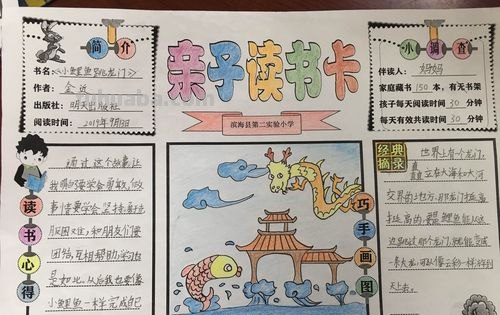 亲子读书卡
滨海县第二实验小学
简介
书名：《小鲤鱼跳龙门》
作者：金近
出版社：明天出版社
阅读时间：2019年9月13日
小调查
伴读人：妈妈
家庭藏书150本，有无书架
孩子每天阅读时间30分钟
每天有效共读时间30分钟
读书心得
通过这个故事让
我明白要学会勇敢，做
事情要学会坚持，克
服困难，和朋友们要
团结，互相帮助，学习也
是如此，从后我也要像
小鲤鱼一样完成自己
巧手画图
经典摘录
世界上有个龙门，
直立在大海和大河
交界的地方，那龙门挺高
挺高的，鲤鱼能从这
边跳过那个龙门，就能变成
一条大龙，可以像云彩一样游到
天上去。